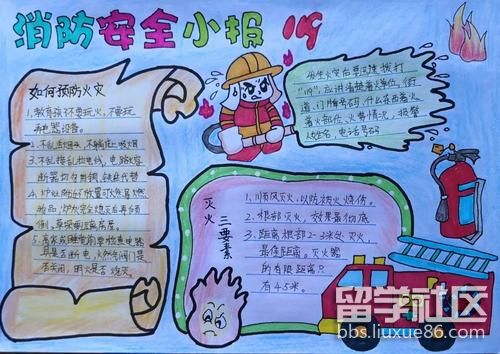 消防安全小报 119
如何预防火灾
1.教育孩子不要玩火,不要玩
弄电器设备。
2.不乱丢烟头,不躺床上吸烟
3.不乱接乱拉电线,电路熔
断器切勿用铜、铁丝代替
4.炉灶附近不放置可燃易燃
物品,炉灰完全熄灭后再倾
倒,草垛要远离房屋。
5.离家或睡觉前要检查电器
具是否断电,火燃气阀门是
否关闭,明火是否熄灭。
发生火灾后要迅速拨打
"119",应讲清楚着火单位,街
道、门牌号码,什么东西着火
着火部位、火势情况,报警
人姓名、电话号码
灭火三要素
1.顺风灭火,以防被火烧伤。
2.根部灭火,效果最彻底
3.距离根部2-3米处灭火,
最佳距离。灭火器
的有限距离只
有4.5米。
留学社区
bbs.liuxue86.com